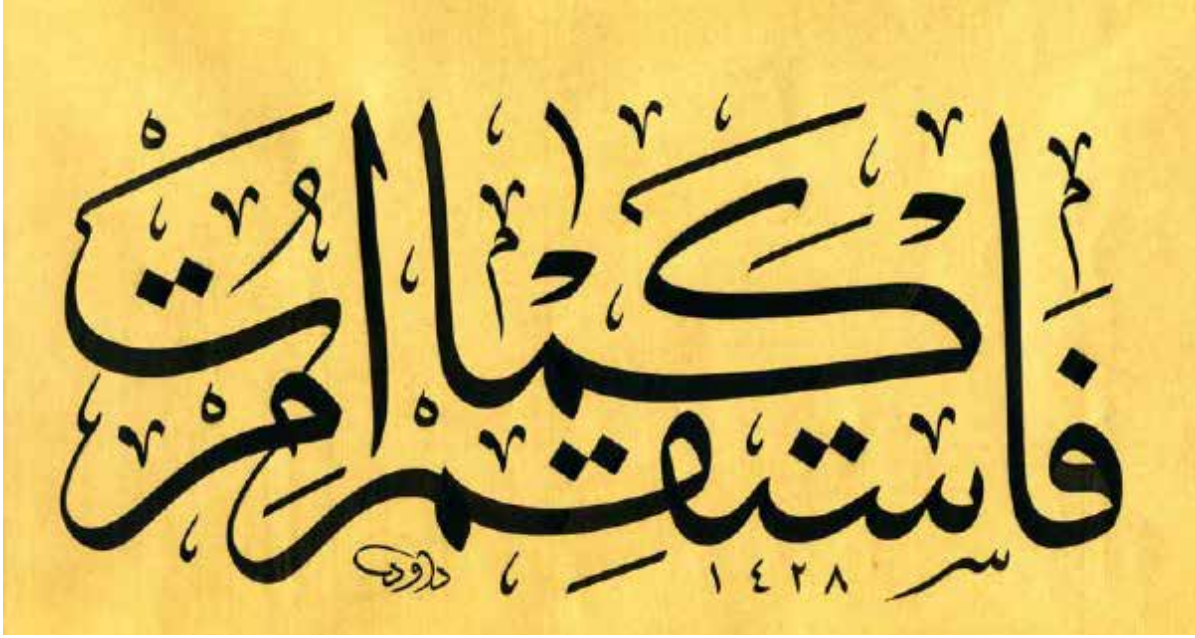 فَاسْتَقِمْ كَمَا اُمِرْتَ
داود ١٤٢٨